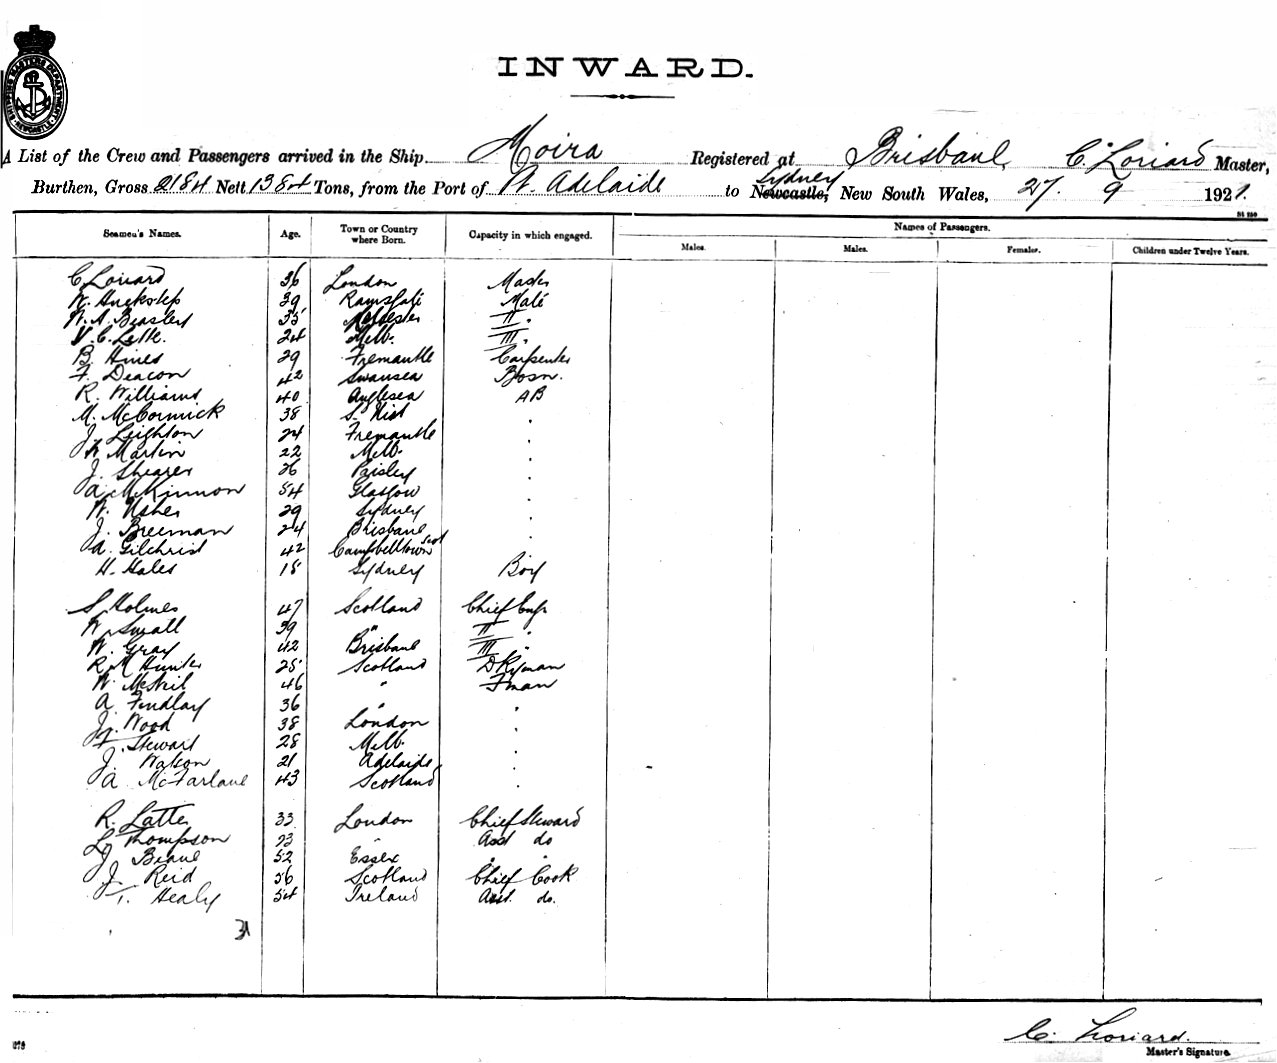 INWARD.
A List of the Crew and Passengers arrived in the Ship Moira Registered at Brisbane C. Loriard Master,
Burthen, Gross 2184 Nett 1384 Tons, from the Port of Pt. Adelaide to Newcastle, Sydney New South Wales, 27. 9 1921.
Seamen's Names. Age. Town or Country where Born. Capacity in which engaged. Names of Passengers.
Males. Males. Females. Children under Twelve Years.
C Loriard 36 London Master
W. Huckstep 39 Ramsgate Mate
W. A. Beasley 35 II.
V. C. Lette. 24 Melb. III.
B. Hines 29 Fremantle Carpenter
F. Deacon 42 Swansea Bosn.
R. Williams 40 Anglesea AB
M. McCormick 38 S. Uist "
J. Leighton 24 Fremantle "
W Martin 22 Melb. "
J. Shearer 26 Paisley "
A McKinnon 54 Glasgow "
W. Usher 29 Sydney "
J. Breeman 24 Brisbane "
A. Gilchrist 42 Campbelltown Scot "
H. Hales 18 Sydney Boy
S. Holmes 47 Scotland Chief Engr
W. Small 39 " II "
W. Gray 42 Brisbane III "
R. M Hunter 25 Scotland Dkyman
W. McNeil 46 " Fman
A Findlay 36 " "
J. Wood 38 London "
F. Stewart 28 Melb. "
J. Watson 21 Adelaide "
A McFarlane 43 Scotland "
R. Latter 33 London Chief Steward
L. Thompson 23 " Asst do
J Beane 52 Essex " "
J. Reid 56 Scotland Chief Cook
T. Healy 54 Ireland Asst. do.
31
C. Loriard.
Master's Signature.